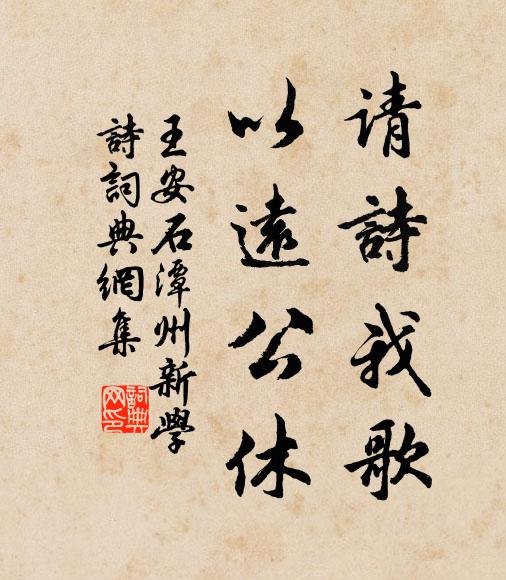 请詩我歌
以遠公休
王安石潭州新學
詩詞典網集
詞典
网印